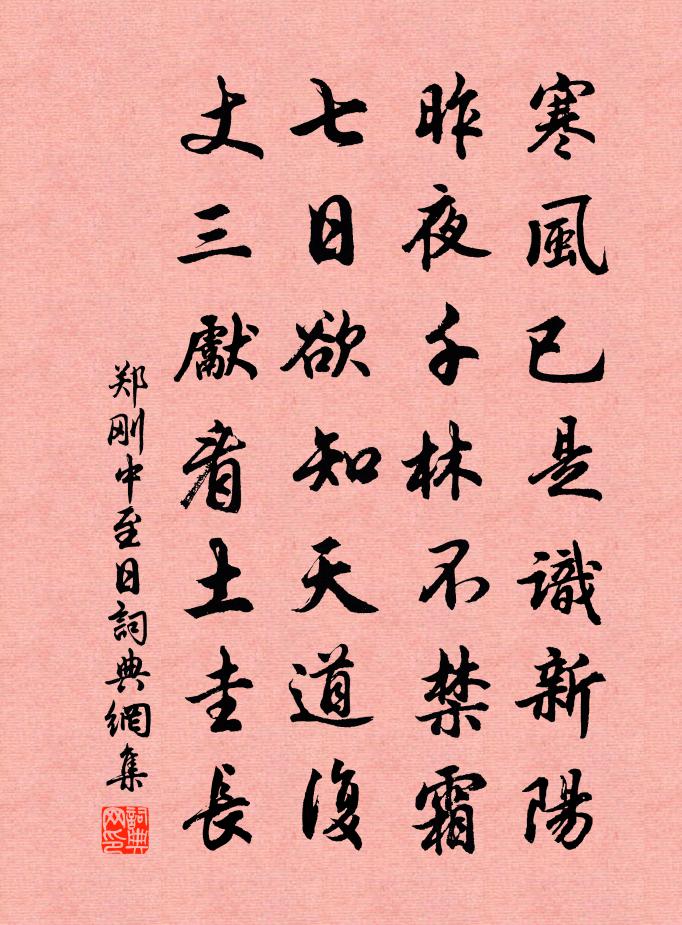 寒風已是識新陽
昨夜千林不禁霜
七日欲知天道復
丈三獻看土圭長
郑刚中至日詞典網集
詞典网印